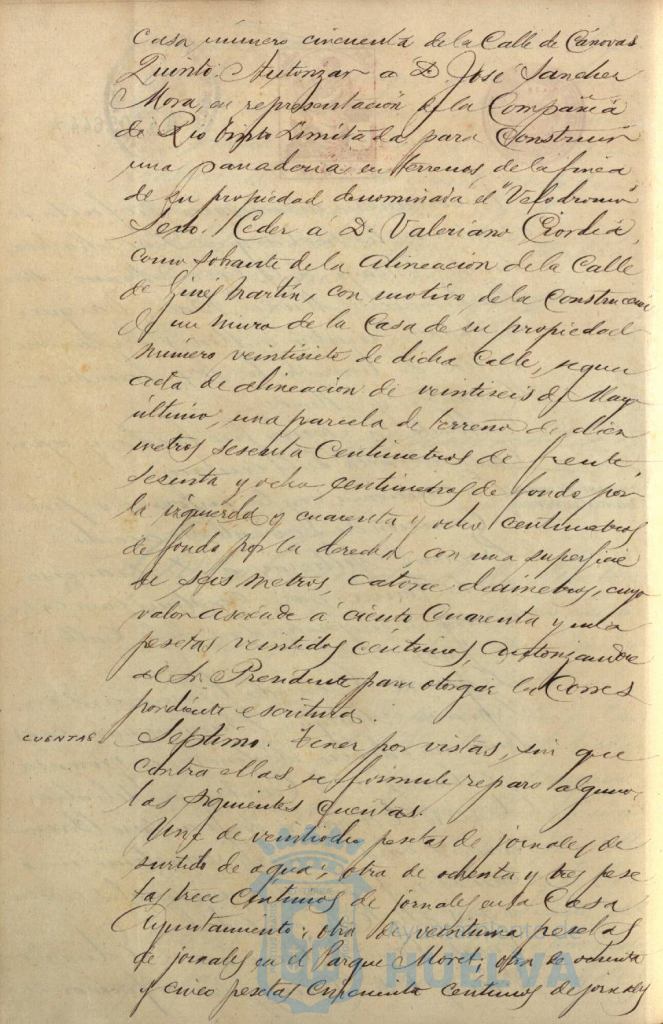 Casa número cincuenta de la Calle de Cánovas
Quinto. Autorizar a D. José Sanchez
Mora, en representación de la Compañia
de Rio Tinto Limitada para Construir
una panaderia en terrenos de la finca
de su propiedad denominada el "Velodromo"
Sexto. Ceder á D. Valeriano
como sobrante de la alineacion de la Calle
de Ginés Martín, con motivo de la Construccion
de un muro de la Casa de su propiedad
número veintisiete de dicha Calle, segun
acta de alineacion de veintiseis de Mayo
último, una parcela de terreno de diez
metros sesenta Centimetros de frente,
sesenta y ocho Centimetros de fondo por
la izquierda y cuarenta y ocho centimetros
de fondo por la derecha, con una superficie
de seis metros, catorce decimetros, cuyo
valor asciende á ciento Cuarenta y una
pesetas veintidos céntimos, autorizandose
al Sr. Presidente para otorgar la Corres
pondiente escritura.
CUENTAS. Septimo. Tener por vistas, sin que
contra ellas se formule reparo alguno,
las siguientes cuentas.
Una de veintiocho pesetas de jornales de
surtido de agua; otra de ochenta y tres pese
tas trece Centimos de jornales en la Casa
Ayuntamiento; otra de veintiuna pesetas
de jornales en el Parque Moret; otra de ochenta
y cinco pesetas cincuenta centimos de jornales
Ayuntamiento de
HUELVA